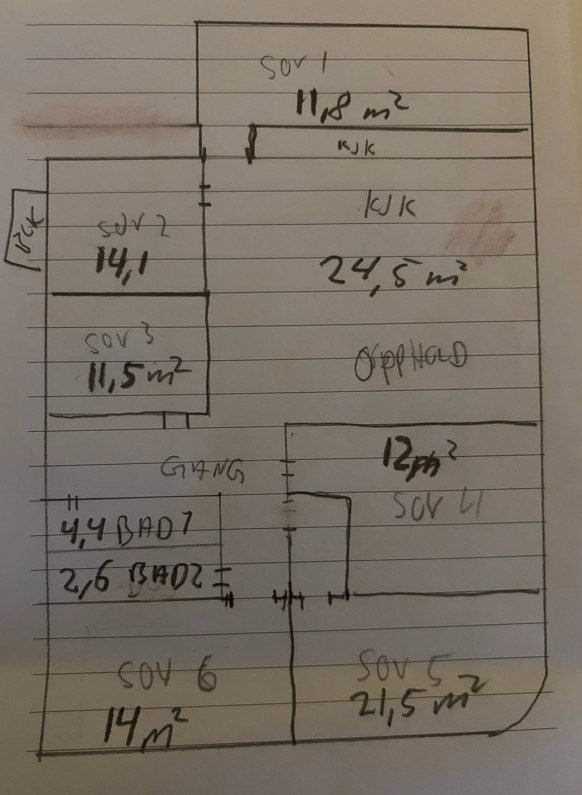 SOV 1
11,8 m²
KJK
KJK
SOV 2
14,1
24,5 m²
SOV 3
11,5 m²
OPPHOLD
12 m²
GANG
SOV 4
4,4 BAD 1
2,6 BAD2
SOV 6
14 m²
SOV 5
21,5 m²